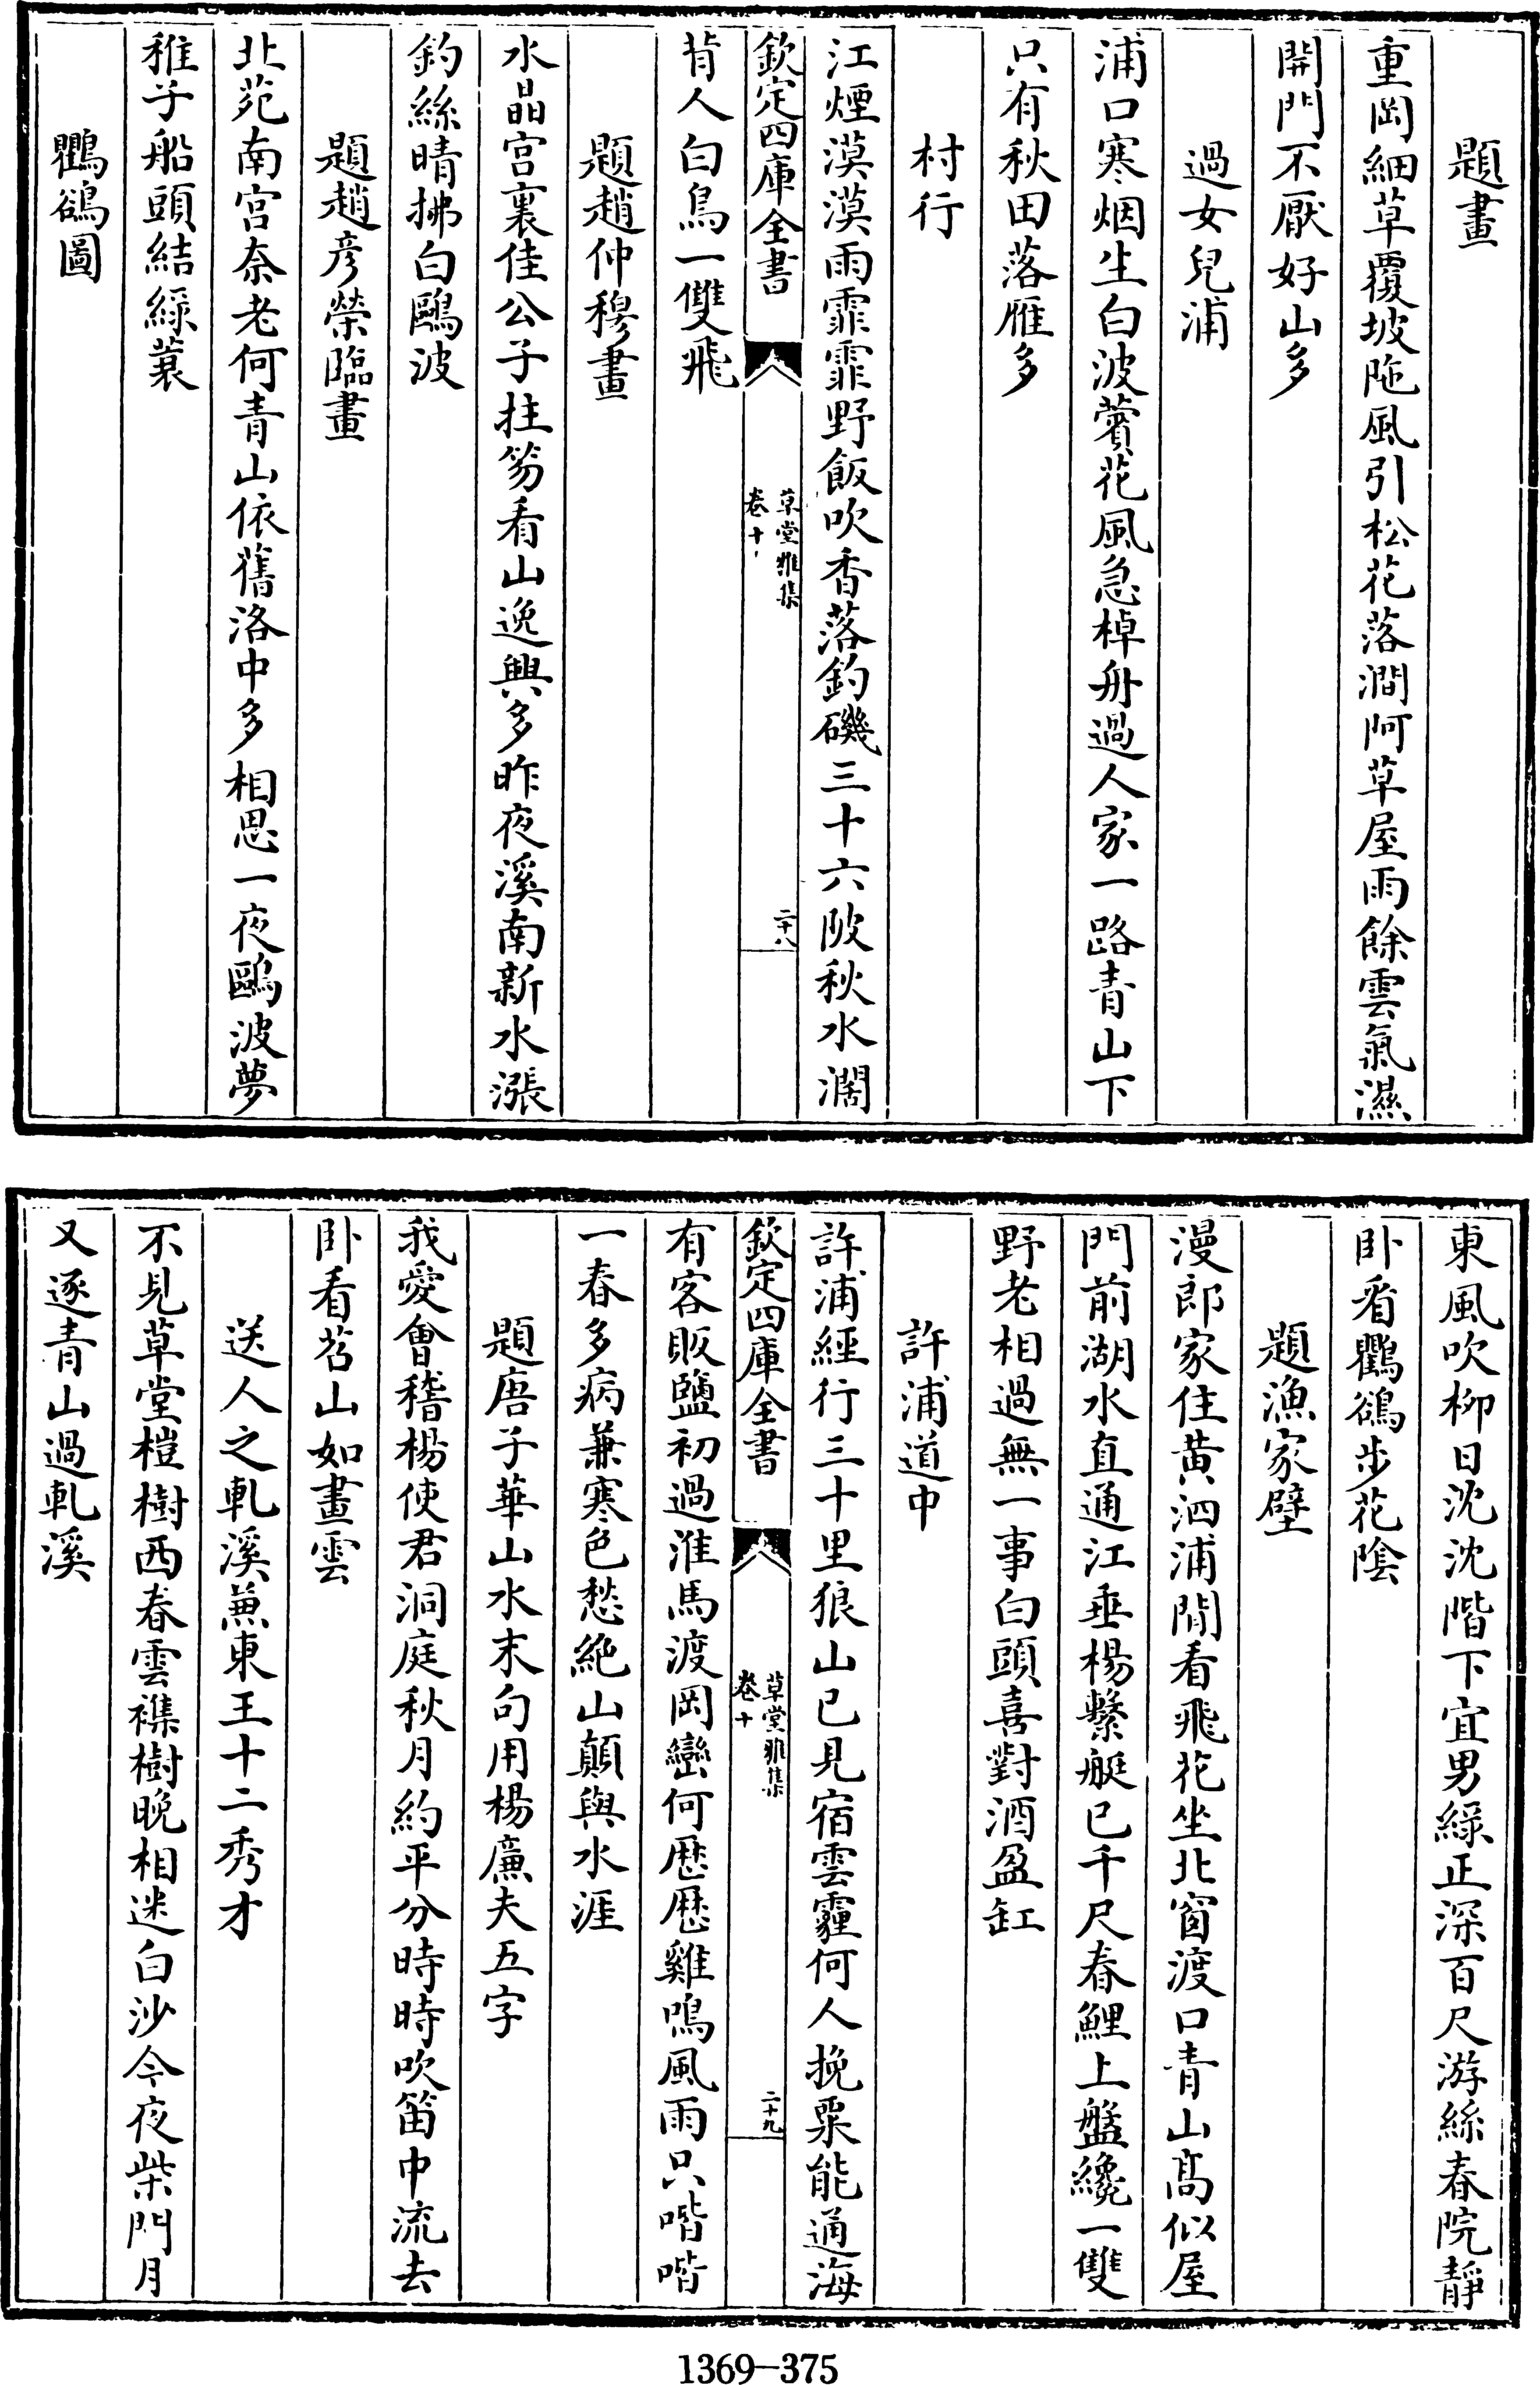 題畫
重岡細草覆坡陁風引松花落澗阿草屋雨餘雲氣濕
開門不厭好山多
過女兒浦
浦口寒烟生白波薲花風急棹舟過人家一路青山下
只有秋田落雁多
村行
江煙漠漠雨霏霏野飯吹香落釣磯三十六陂秋水濶
欽定四庫全書
草堂雅集
卷十
二十八
背人白鳥一雙飛
題趙仲穆畫
水晶宫裏佳公子拄笏看山逸興多昨夜溪南新水漲
釣絲晴拂白鷗波
題趙彦榮臨畫
北苑南宫奈老何青山依舊洛中多相思一夜鷗波夢
稚子船頭結綠蓑
鸜鵒圖
東風吹柳日沈沈階下宜男綠正深百尺游絲春院靜
卧看鸜鵒步花陰
題漁家壁
漫郎家住黄泗浦閒看飛花坐北窗渡口青山髙似屋
門前湖水直通江垂楊繫艇已千尺春鯉上盤纔一雙
野老相過無一事白頭喜對酒盈缸
許浦道中
許浦經行三十里狼山已見宿雲霾何人挽粟能通海
欽定四庫全書
草堂雅集
卷十
二十九
有客販鹽初過淮馬渡岡巒何歴歴雞鳴風雨只喈喈
一春多病兼寒色愁絶山顛與水涯
題唐子華山水末句用楊廉夫五字
我愛會稽楊使君洞庭秋月約平分時時吹笛中流去
卧看苕山如畫雲
送人之軋溪兼東王十二秀才
不見草堂榿樹西春雲襍樹晚相迷白沙今夜柴門月
又逐青山過軋溪
1369-375